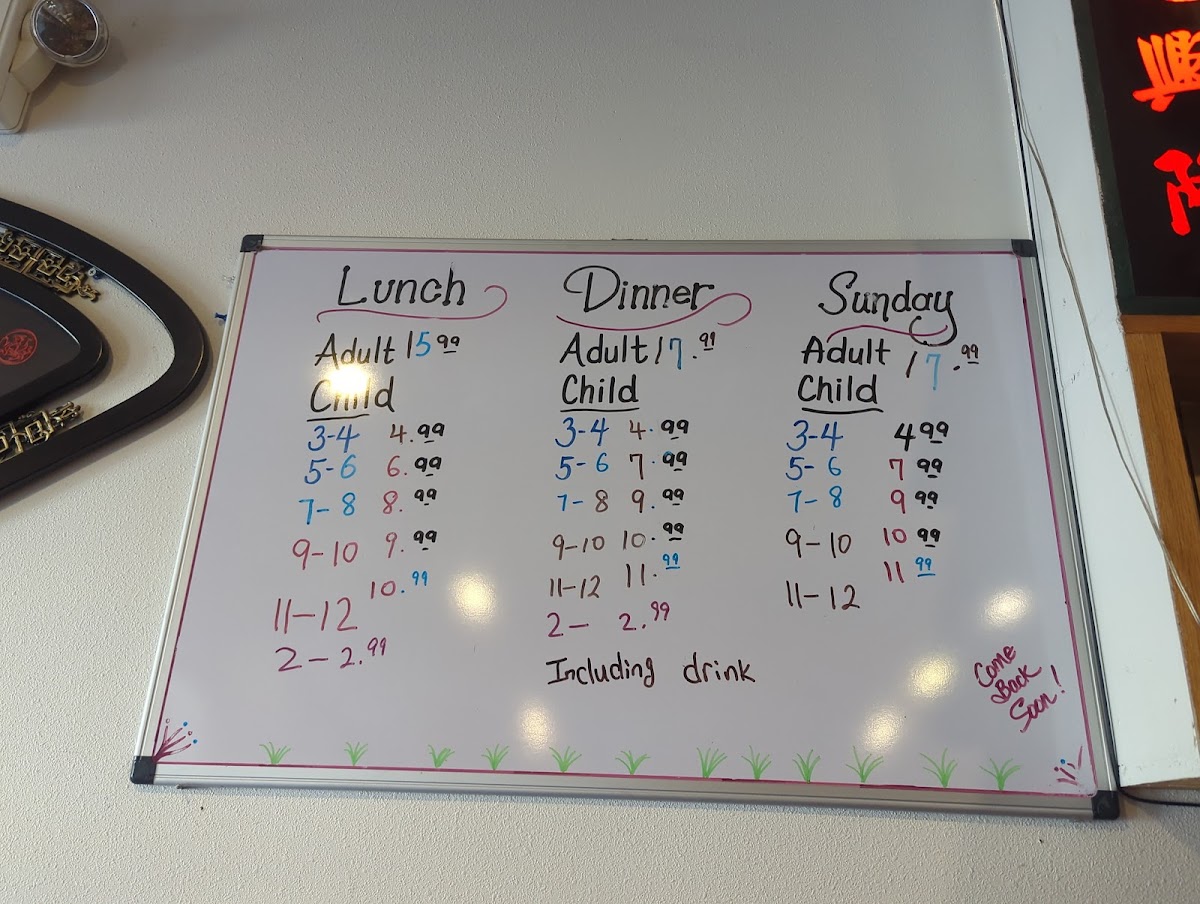 Lunch
Adult 15 99
Child
3-4 4.99
5-6 6.99
7-8 8.99
9-10 9.99
11-12 10.99
2- 2.99
Dinner
Adult 17.99
Child
3-4 4.99
5-6 7.99
7-8 9.99
9-10 10.99
11-12 11.99
2- 2.99
Including drink
Sunday
Adult 17.99
Child
3-4 4 99
5-6 7 99
7-8 9 99
9-10 10 99
11-12 11 99
Come
Back
Soon!